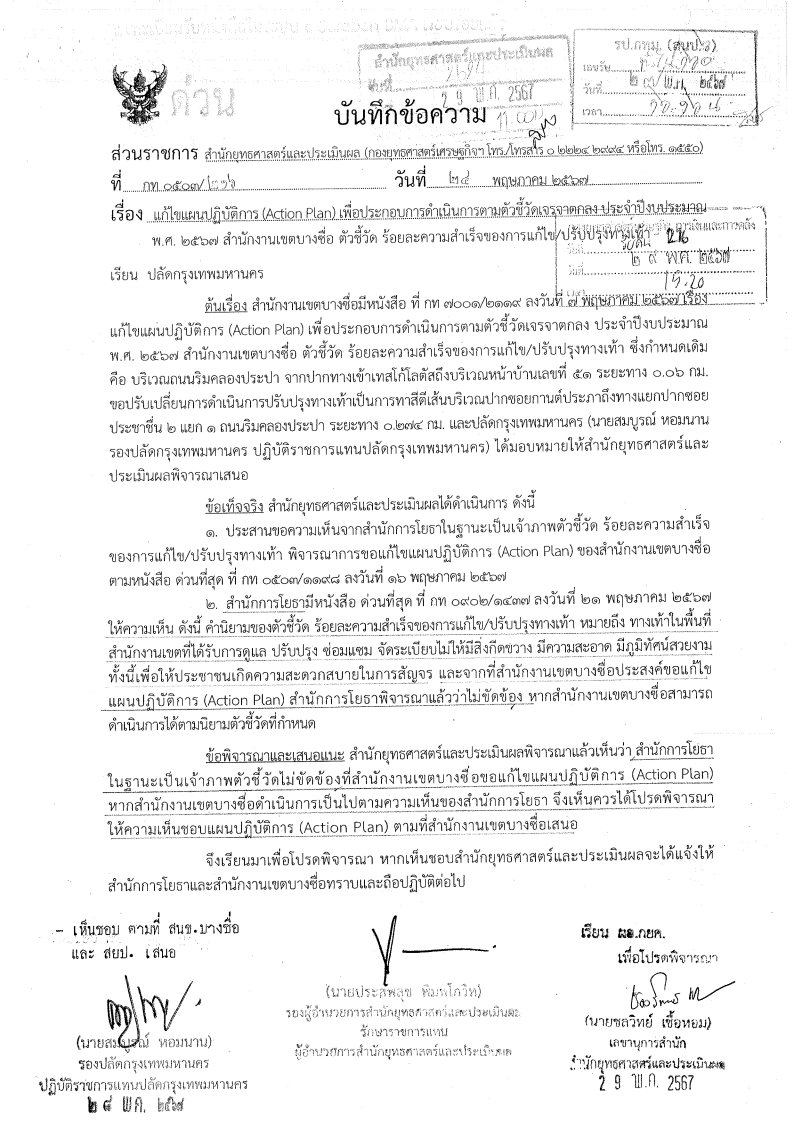 สำนักยุทธศาสตร์และประเมินผล
วันที่ 2 9 พ.ค. 2567
รป.กทม.
เลขรับ
วันที่ ๒๙ พ.ค. ๒๕๖๗
เวลา
ด่วน
บันทึกข้อความ
ส่วนราชการ สำนักยุทธศาสตร์และประเมินผล (กองยุทธศาสตร์เศรษฐกิจฯ โทร./โทรสาร ๐ ๒๒๒๔ ๒๙๙๔ หรือโทร. ๑๕๕๐)
ที่ กท ๐๕๐๓/ วันที่ ๒๘ พฤษภาคม ๒๕๖๗
เรื่อง แก้ไขแผนปฏิบัติการ (Action Plan) เพื่อประกอบการดำเนินการตามตัวชี้วัดเจรจาตกลง ประจำปีงบประมาณ
พ.ศ. ๒๕๖๗ สำนักงานเขตบางซื่อ ตัวชี้วัด ร้อยละความสำเร็จของการแก้ไข/ปรับปรุงทางเท้า
๒ ๙ พ.ค. ๒๕๖๗
15.20
เรียน ปลัดกรุงเทพมหานคร
ต้นเรื่อง สำนักงานเขตบางซื่อมีหนังสือ ที่ กท ๗๐๐๑/๒๑๑๙ ลงวันที่ ๗ พฤษภาคม ๒๕๖๗ เรื่อง
แก้ไขแผนปฏิบัติการ (Action Plan) เพื่อประกอบการดำเนินการตามตัวชี้วัดเจรจาตกลง ประจำปีงบประมาณ
พ.ศ. ๒๕๖๗ สำนักงานเขตบางซื่อ ตัวชี้วัด ร้อยละความสำเร็จของการแก้ไข/ปรับปรุงทางเท้า ซึ่งกำหนดเดิม
คือ บริเวณถนนริมคลองประปา จากปากทางเข้าเทสโก้โลตัสถึงบริเวณหน้าบ้านเลขที่ ๕๑ ระยะทาง ๐.๐๖ กม.
ขอปรับเปลี่ยนการดำเนินการปรับปรุงทางเท้าเป็นการทาสีตีเส้นบริเวณปากซอยกานต์ประภาถึงทางแยกปากซอย
ประชาชื่น ๒ แยก ๑ ถนนริมคลองประปา ระยะทาง ๐.๒๗๔ กม. และปลัดกรุงเทพมหานคร (นายสมบูรณ์ หอมนาน
รองปลัดกรุงเทพมหานคร ปฏิบัติราชการแทนปลัดกรุงเทพมหานคร) ได้มอบหมายให้สำนักยุทธศาสตร์และ
ประเมินผลพิจารณาเสนอ
ข้อเท็จจริง สำนักยุทธศาสตร์และประเมินผลได้ดำเนินการ ดังนี้
๑. ประสานขอความเห็นจากสำนักการโยธาในฐานะเป็นเจ้าภาพตัวชี้วัด ร้อยละความสำเร็จ
ของการแก้ไข/ปรับปรุงทางเท้า พิจารณาการขอแก้ไขแผนปฏิบัติการ (Action Plan) ของสำนักงานเขตบางซื่อ
ตามหนังสือ ด่วนที่สุด ที่ กท ๐๕๐๓/๑๑๙๘ ลงวันที่ ๑๖ พฤษภาคม ๒๕๖๗
๒. สำนักการโยธามีหนังสือ ด่วนที่สุด ที่ กท ๐๙๐๒/๑๔๓๗ ลงวันที่ ๒๑ พฤษภาคม ๒๕๖๗
ให้ความเห็น ดังนี้ คำนิยามของตัวชี้วัด ร้อยละความสำเร็จของการแก้ไข/ปรับปรุงทางเท้า หมายถึง ทางเท้าในพื้นที่
สำนักงานเขตที่ได้รับการดูแล ปรับปรุง ซ่อมแซม จัดระเบียบไม่ให้มีสิ่งกีดขวาง มีความสะอาด มีภูมิทัศน์สวยงาม
ทั้งนี้เพื่อให้ประชาชนเกิดความสะดวกสบายในการสัญจร และจากที่สำนักงานเขตบางซื่อประสงค์ขอแก้ไข
แผนปฏิบัติการ (Action Plan) สำนักการโยธาพิจารณาแล้วว่าไม่ขัดข้อง หากสำนักงานเขตบางซื่อสามารถ
ดำเนินการได้ตามนิยามตัวชี้วัดที่กำหนด
ข้อพิจารณาและเสนอแนะ สำนักยุทธศาสตร์และประเมินผลพิจารณาแล้วเห็นว่า สำนักการโยธา
ในฐานะเป็นเจ้าภาพตัวชี้วัดไม่ขัดข้องที่สำนักงานเขตบางซื่อขอแก้ไขแผนปฏิบัติการ (Action Plan)
หากสำนักงานเขตบางซื่อดำเนินการเป็นไปตามความเห็นของสำนักการโยธา จึงเห็นควรได้โปรดพิจารณา
ให้ความเห็นชอบแผนปฏิบัติการ (Action Plan) ตามที่สำนักงานเขตบางซื่อเสนอ
จึงเรียนมาเพื่อโปรดพิจารณา หากเห็นชอบสำนักยุทธศาสตร์และประเมินผลจะได้แจ้งให้
สำนักการโยธาและสำนักงานเขตบางซื่อทราบและถือปฏิบัติต่อไป
– เห็นชอบ ตามที่ สนข.บางซื่อ
และ สยป. เสนอ
(นายสมบูรณ์ หอมนาน)
รองปลัดกรุงเทพมหานคร
ปฏิบัติราชการแทนปลัดกรุงเทพมหานคร
๒๘ พ.ค. ๒๕๖๗
(นายประสพสุข พิมพโกวิท)
รองผู้อำนวยการสำนักยุทธศาสตร์และประเมินผล
รักษาราชการแทน
ผู้อำนวยการสำนักยุทธศาสตร์และประเมินผล
เรียน ผอ.กยค.
เพื่อโปรดพิจารณา
(นายชลวิทย์ เชื้อหอม)
เลขานุการสำนัก
สำนักยุทธศาสตร์และประเมินผล
2 9 พ.ค. 2567